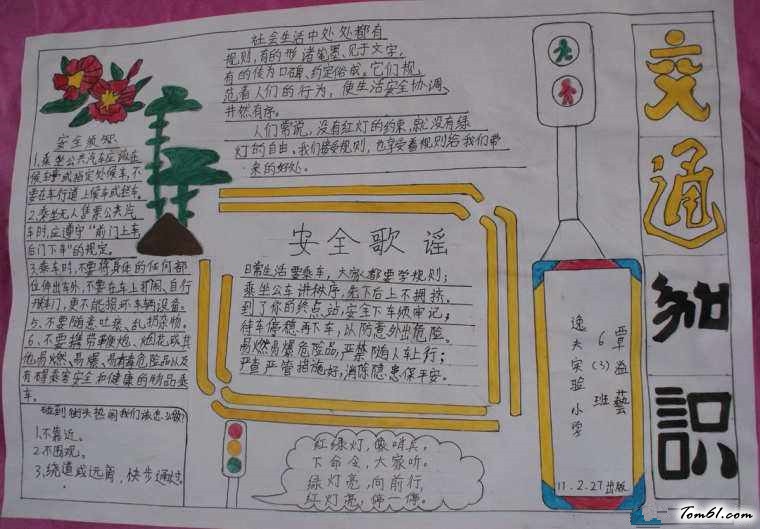 交通知识
社会生活中处处都有
规则,有的形诸笔墨、见于文字,
有的传为口碑、约定俗成,它们规
范着人们的行为,使生活安全协调、
井然有序。
人们常说,没有红灯的约束,就没有绿
灯的自由,我们接受规则,也享受着规则给我们带
来的好处。
安全须知
1、乘坐公共汽车应站在
候车亭或指定处候车,不
要在车行道上候车或拦车。
2、乘坐无人售票公共汽
车时,应遵守“前门上车
后门下车”的规定。
3、乘车时,不要将身体的任何部
位伸出车外,不要在车上打闹、自行
开车门,更不能损坏车辆设备。
5、不要随意吐痰、乱扔杂物。
6、不要携带鞭炮、烟花或其
他易燃、易爆、易有毒危险品以及
有碍乘客安全和健康的物品乘
车。
碰到街头热闹我们该怎么做?
1、不靠近。
2、不围观。
3、绕道或远离,快步通过。
安全歌谣
日常生活要乘车,大家都要学规则;
乘坐公车讲秩序,先下后上不拥挤。
到了你的终点站,安全下车须牢记;
待车停稳再下车,以防意外出危险。
易燃易爆危险品,严禁随人车上行;
严查严管措施好,消除隐患保平安。
红绿灯,像哨兵,
下命令,大家听。
绿灯亮,向前行,
红灯亮,停一停。
逸夫实验小学
6(3)班
覃益藝
11.2.27出版
Tom61.com